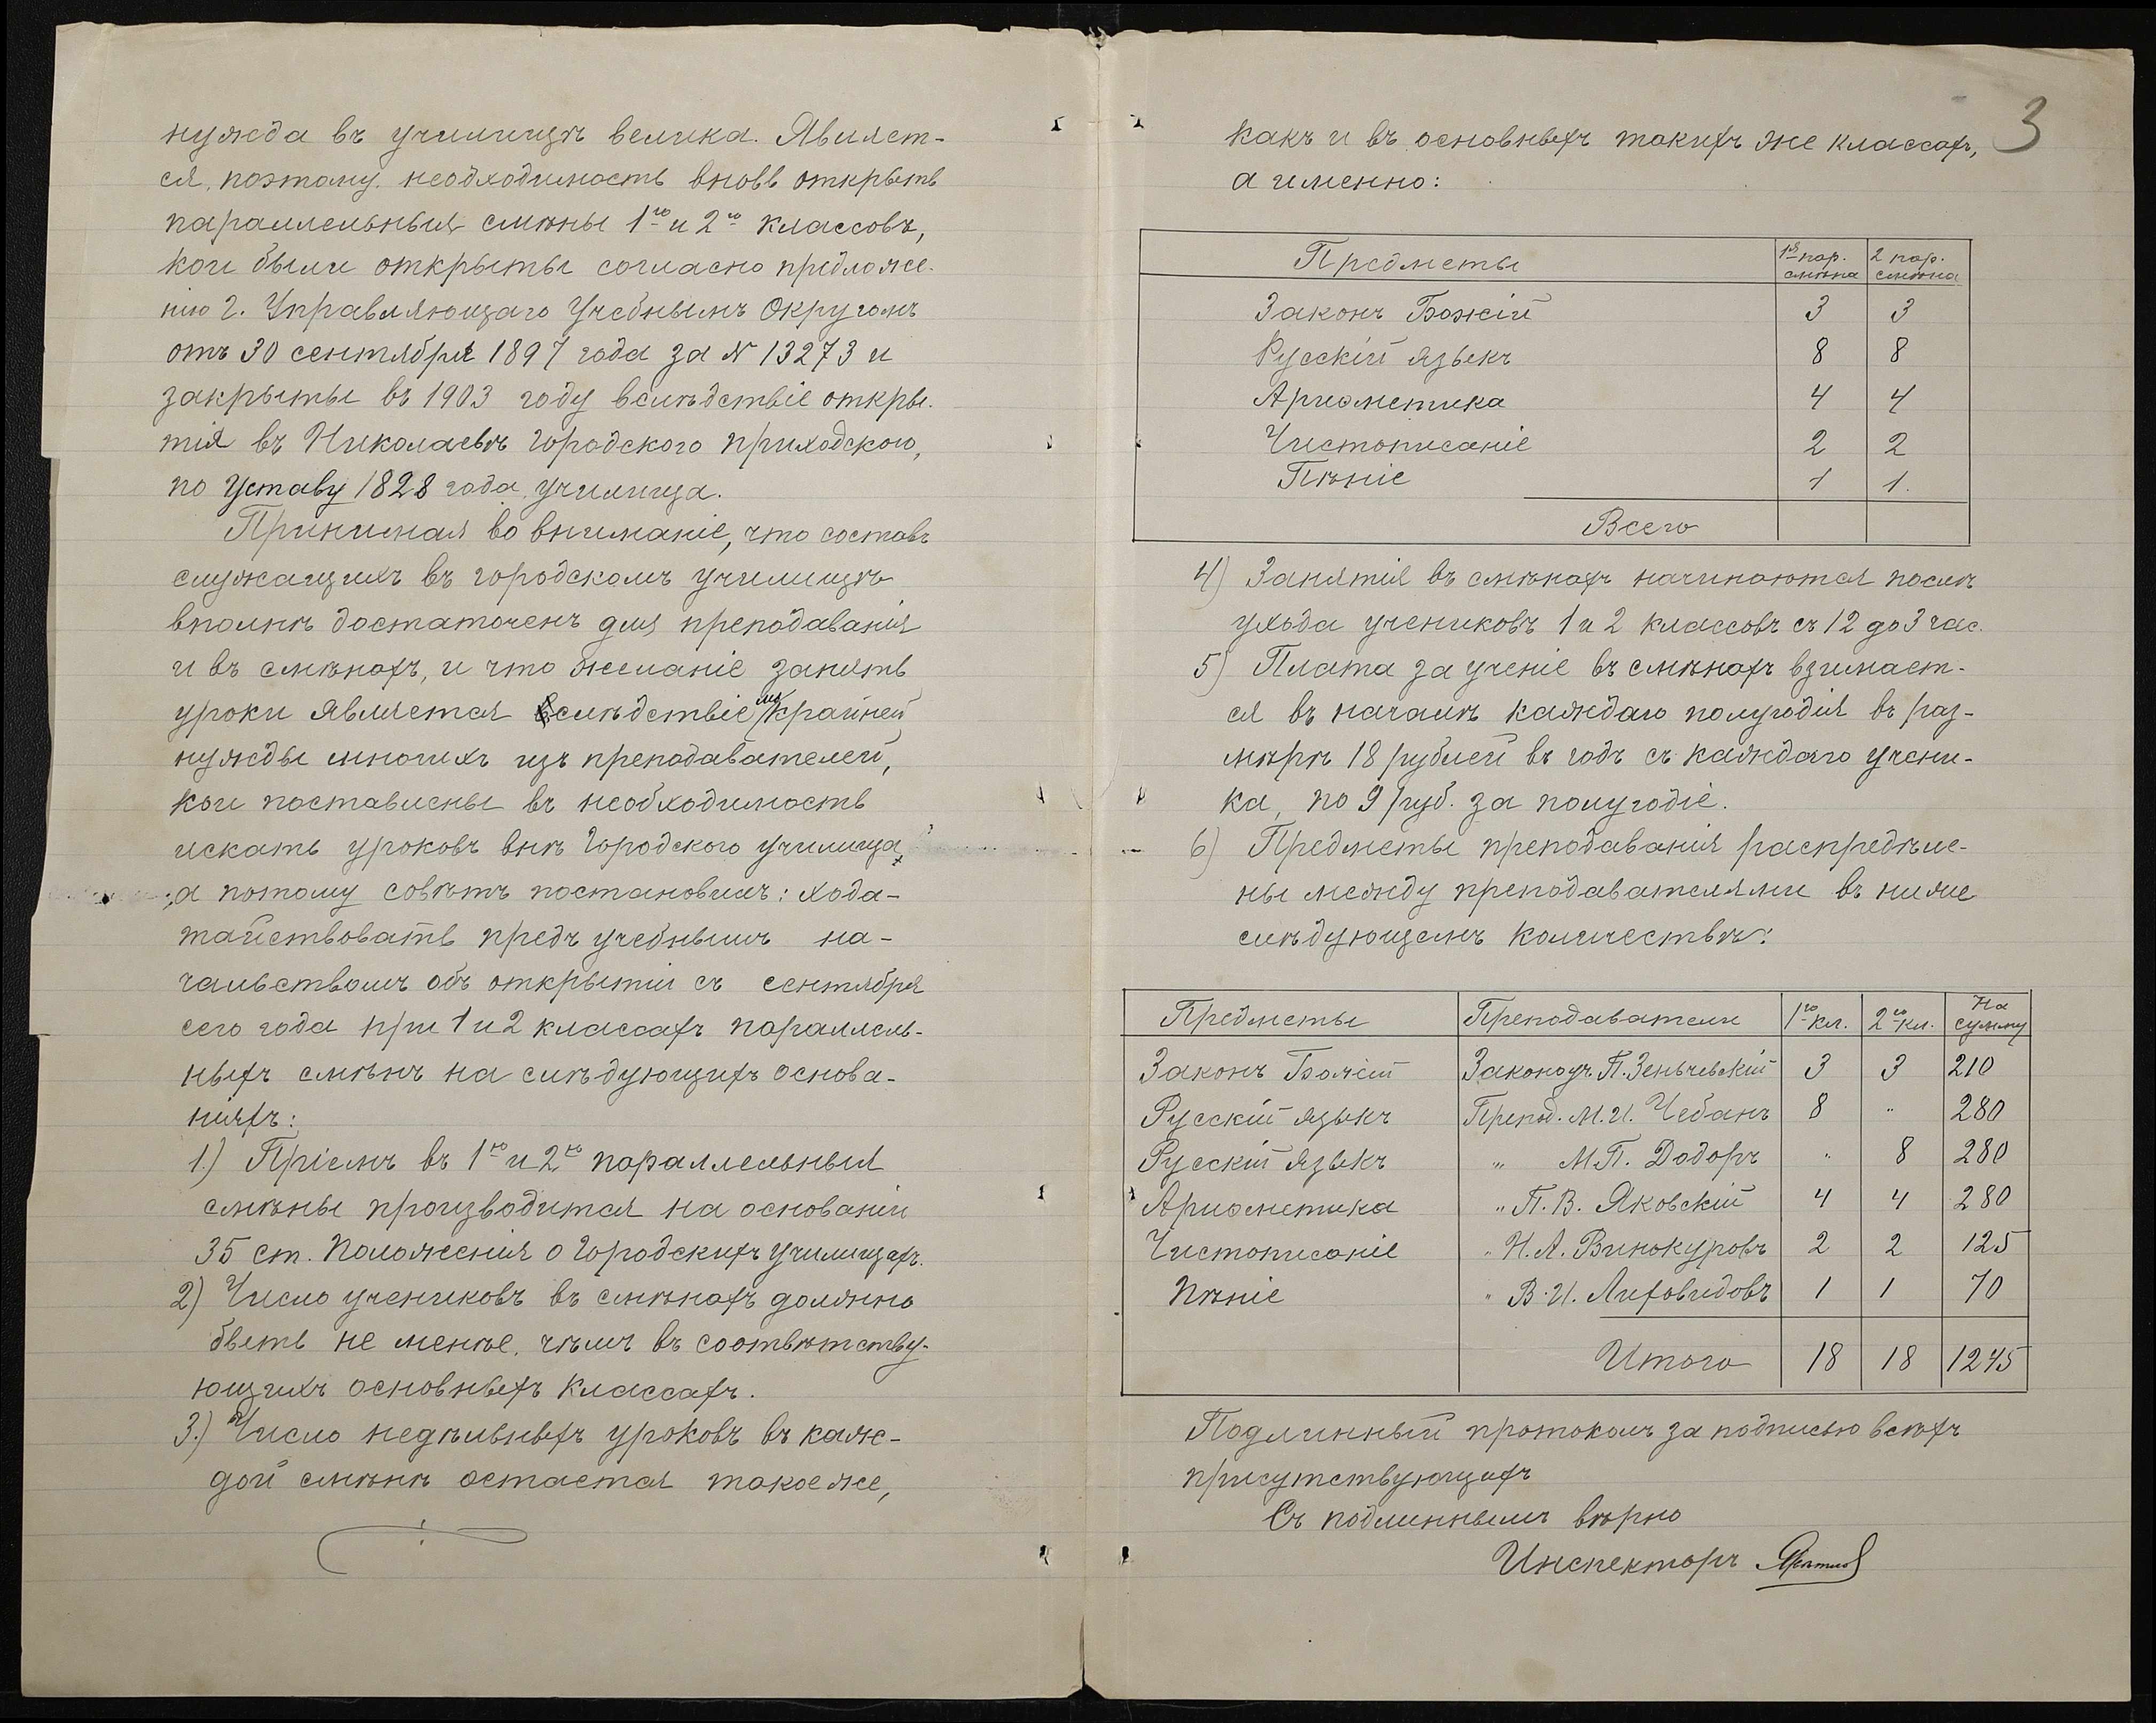 нужда въ училищѣ велика. Являет-
ся, поэтому, необходимость вновь открыть
параллельныя смѣны 1го и 2го классовъ,
кои были открыты согласно предложе-
нію Г. Управляющаго Учебнымъ Округомъ
отъ 30 сентября 1897 года за № 13273 и
закрыты въ 1903 году вслѣдствіе откры-
тія въ Николаевѣ Городского приходского,
по Уставу 1828 года, училища.
Принимая во вниманіе, что составъ
служащихъ въ городскомъ училищѣ
вполнѣ достаточенъ для преподаванія
и въ смѣнахъ, и что желаніе занять
уроки является вслѣдствіе крайней
нужды многихъ изъ преподавателей,
кои поставлены въ необходимость
искать уроковъ внѣ Городского училища,
а потому совѣтъ постановилъ: хода-
тайствовать предъ учебнымъ на-
чальствомъ объ открытіи съ сентября
сего года при 1 и 2 классахъ параллель-
ныхъ смѣнъ на слѣдующихъ основа-
ніяхъ:
1.) Пріемъ въ 1ю и 2ю параллельныя
смѣны производится на основаніи
35 ст. Положенія о Городскихъ училищахъ.
2) Число учениковъ въ смѣнахъ должно
быть не менѣе, чѣмъ въ соотвѣтству-
ющихъ основныхъ классахъ.
3.) Число недѣльныхъ уроковъ въ каж-
дой смѣнѣ остается такое же,
3
какъ и въ основныхъ такихъ же классахъ,
а именно:
Предметы 1я пар. смѣна 2 пар. смѣна
Законъ Божій 3 3
Русскій языкъ 8 8
Ариѳметика 4 4
Чистописаніе 2 2
Пѣніе 1 1.
Всего
4) Занятія въ смѣнахъ начинаются послѣ
ухода учениковъ 1 и 2 классовъ съ 12 до 3 час.
5) Плата за ученіе въ смѣнахъ взимает-
ся въ началѣ каждаго полугодія въ раз-
мѣрѣ 18 рублей въ годъ съ каждаго учени-
ка, по 9 руб. за полугодіе.
6) Предметы преподаванія распредѣле-
ны между преподавателями въ ниже
слѣдующемъ количествѣ:
Предметы Преподаватели 1го кл. 2го кл. На сумму
Законъ Божій Законоуч. П. Зеньчевскій 3 3 210
Русскій языкъ Препод. М. И. Чебанъ 8 " 280
Русскій языкъ " М. П. Додоръ " 8 280
Ариѳметика " П. В. Яковскій 4 4 280
Чистописаніе " Н. А. Винокуровъ 2 2 125
Пѣніе " В. И. Лиховидовъ 1 1 70
Итого 18 18 1245
Подлинный протоколъ за подписью всѣхъ
присутствующихъ
Съ подлиннымъ вѣрно
Инспекторъ